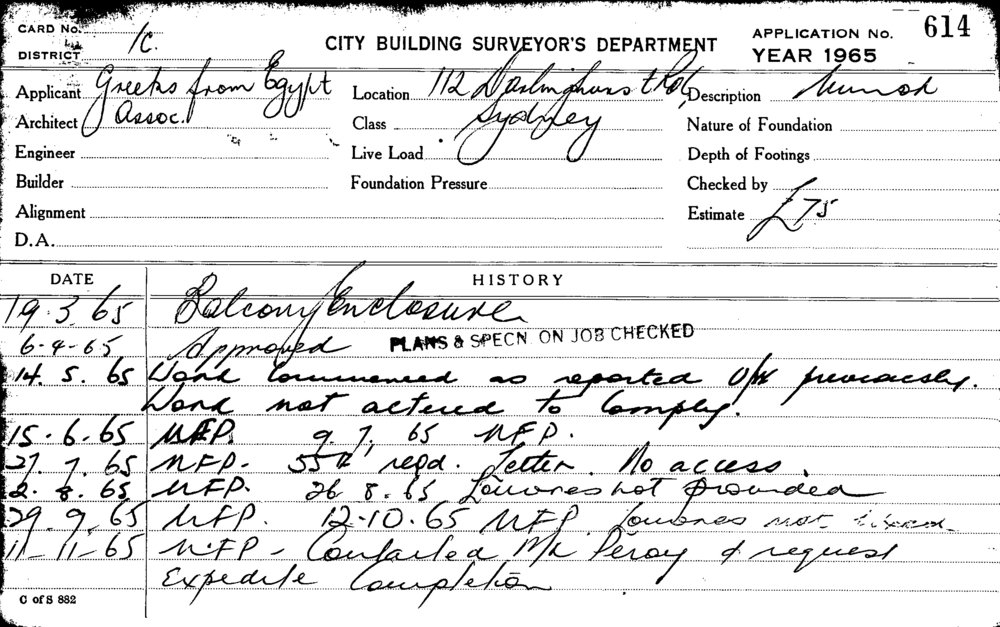 CARD No. 1C. CITY BUILDING SURVEYOR'S DEPARTMENT APPLICATION No. 614
DISTRICT YEAR 1965
Applicant Greeks from Egypt Location 112 Darlinghurst Rd, Description
Architect Assoc. Class Sydney Nature of Foundation
Engineer Live Load Depth of Footings
Builder Foundation Pressure Checked by
Alignment Estimate £75
D.A.
DATE HISTORY
19.3.65 Balcony Enclosure
6-4-65 Approved PLANS & SPECN ON JOB CHECKED
14.5.65 Work Commenced as reported previously.
Work not altered to Comply.
15.6.65 NFP. 9.7.65 NFP.
27.7.65 NFP. regd. Letter. No access.
2.8.65 NFP. 26.8.65 Louvres not provided
29.9.65 NFP. 12-10.65 NFP Louvres not
11-11-65 NFP - Contacted Mr & request
Expedite Completion
C of S 882